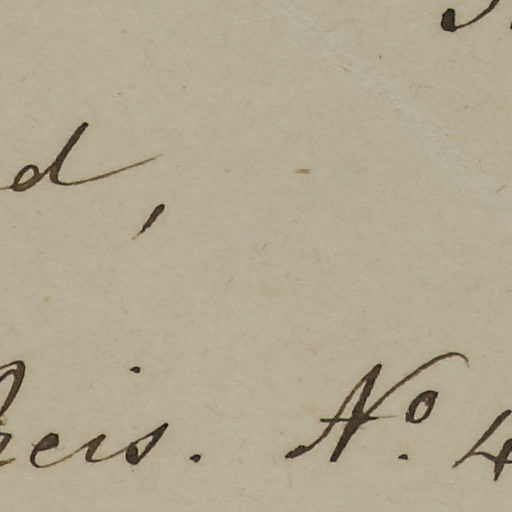 d,
eis. Nº. 4